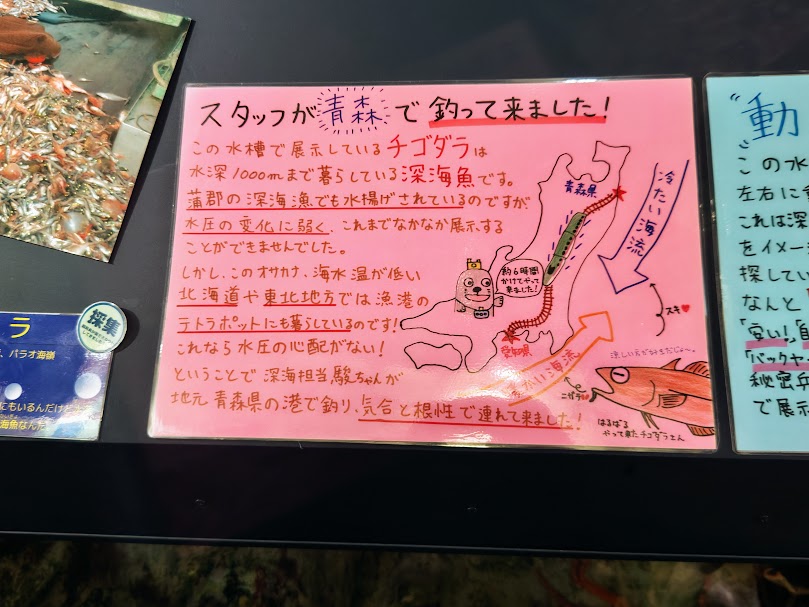 スタッフが青森で釣って来ました!
この水槽で展示しているチゴダラは
水深1000mまで暮らしている深海魚です。
蒲郡の深海漁でも水揚げされているのですが
水圧の変化に弱く、これまでなかなか展示する
ことができませんでした。
しかし、このオサカナ、海水温が低い
北海道や東北地方では漁港の
テトラポットにも暮らしているのです!
これなら水圧の心配がない!
ということで深海担当駿ちゃんが
地元青森県の港で釣り、気合と根性で連れて来ました!
青森県
冷たい海流
約6時間
かけてやって
来ました!
愛知県
あたたかい海流
スキ♥
涼しい方が好きだじょ〜。
ニガテ
はるばる
やって来たチゴダラさん
ラ
採集
、パラオ海嶺
にもいるんだけど
海魚なんだ
"動
この水
左右に
これは深
をイメー
探してい
なんと
で展示